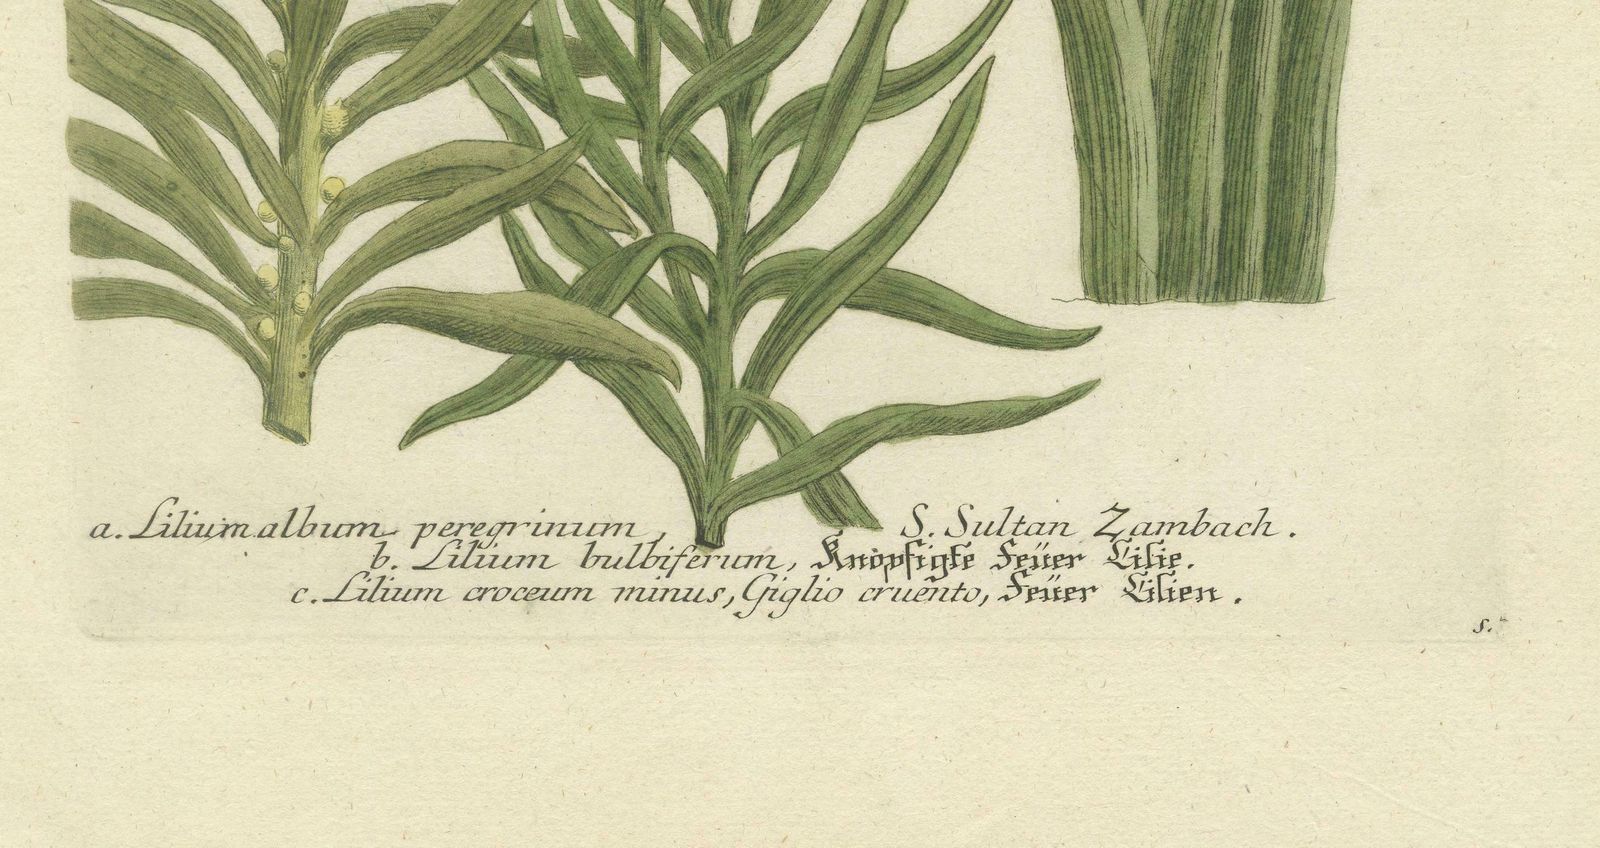 a. Lilium album peregrinum, S. Sultan Zambach.
b. Lilium bulbiferum, Knöpfigte Feüer Lilie.
c. Lilium croceum minus, Giglio cruento, Feüer Lilien.
s.